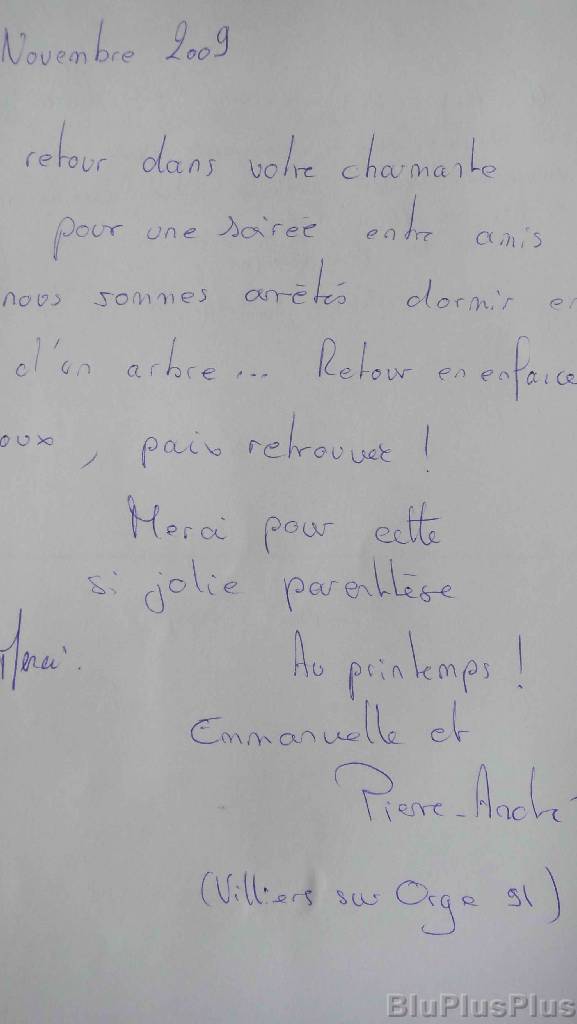 Novembre 2009
retour dans votre charmante
pour une soirée entre amis
nous sommes arrêtés dormir en
d'un arbre... Retour en enfance
oux, paix retrouvée !
Merci pour cette
si jolie parenthèse
Merci.
Au printemps !
Emmanuelle et
Pierre-André
(Villiers sur Orge 91)
BluPlusPlus